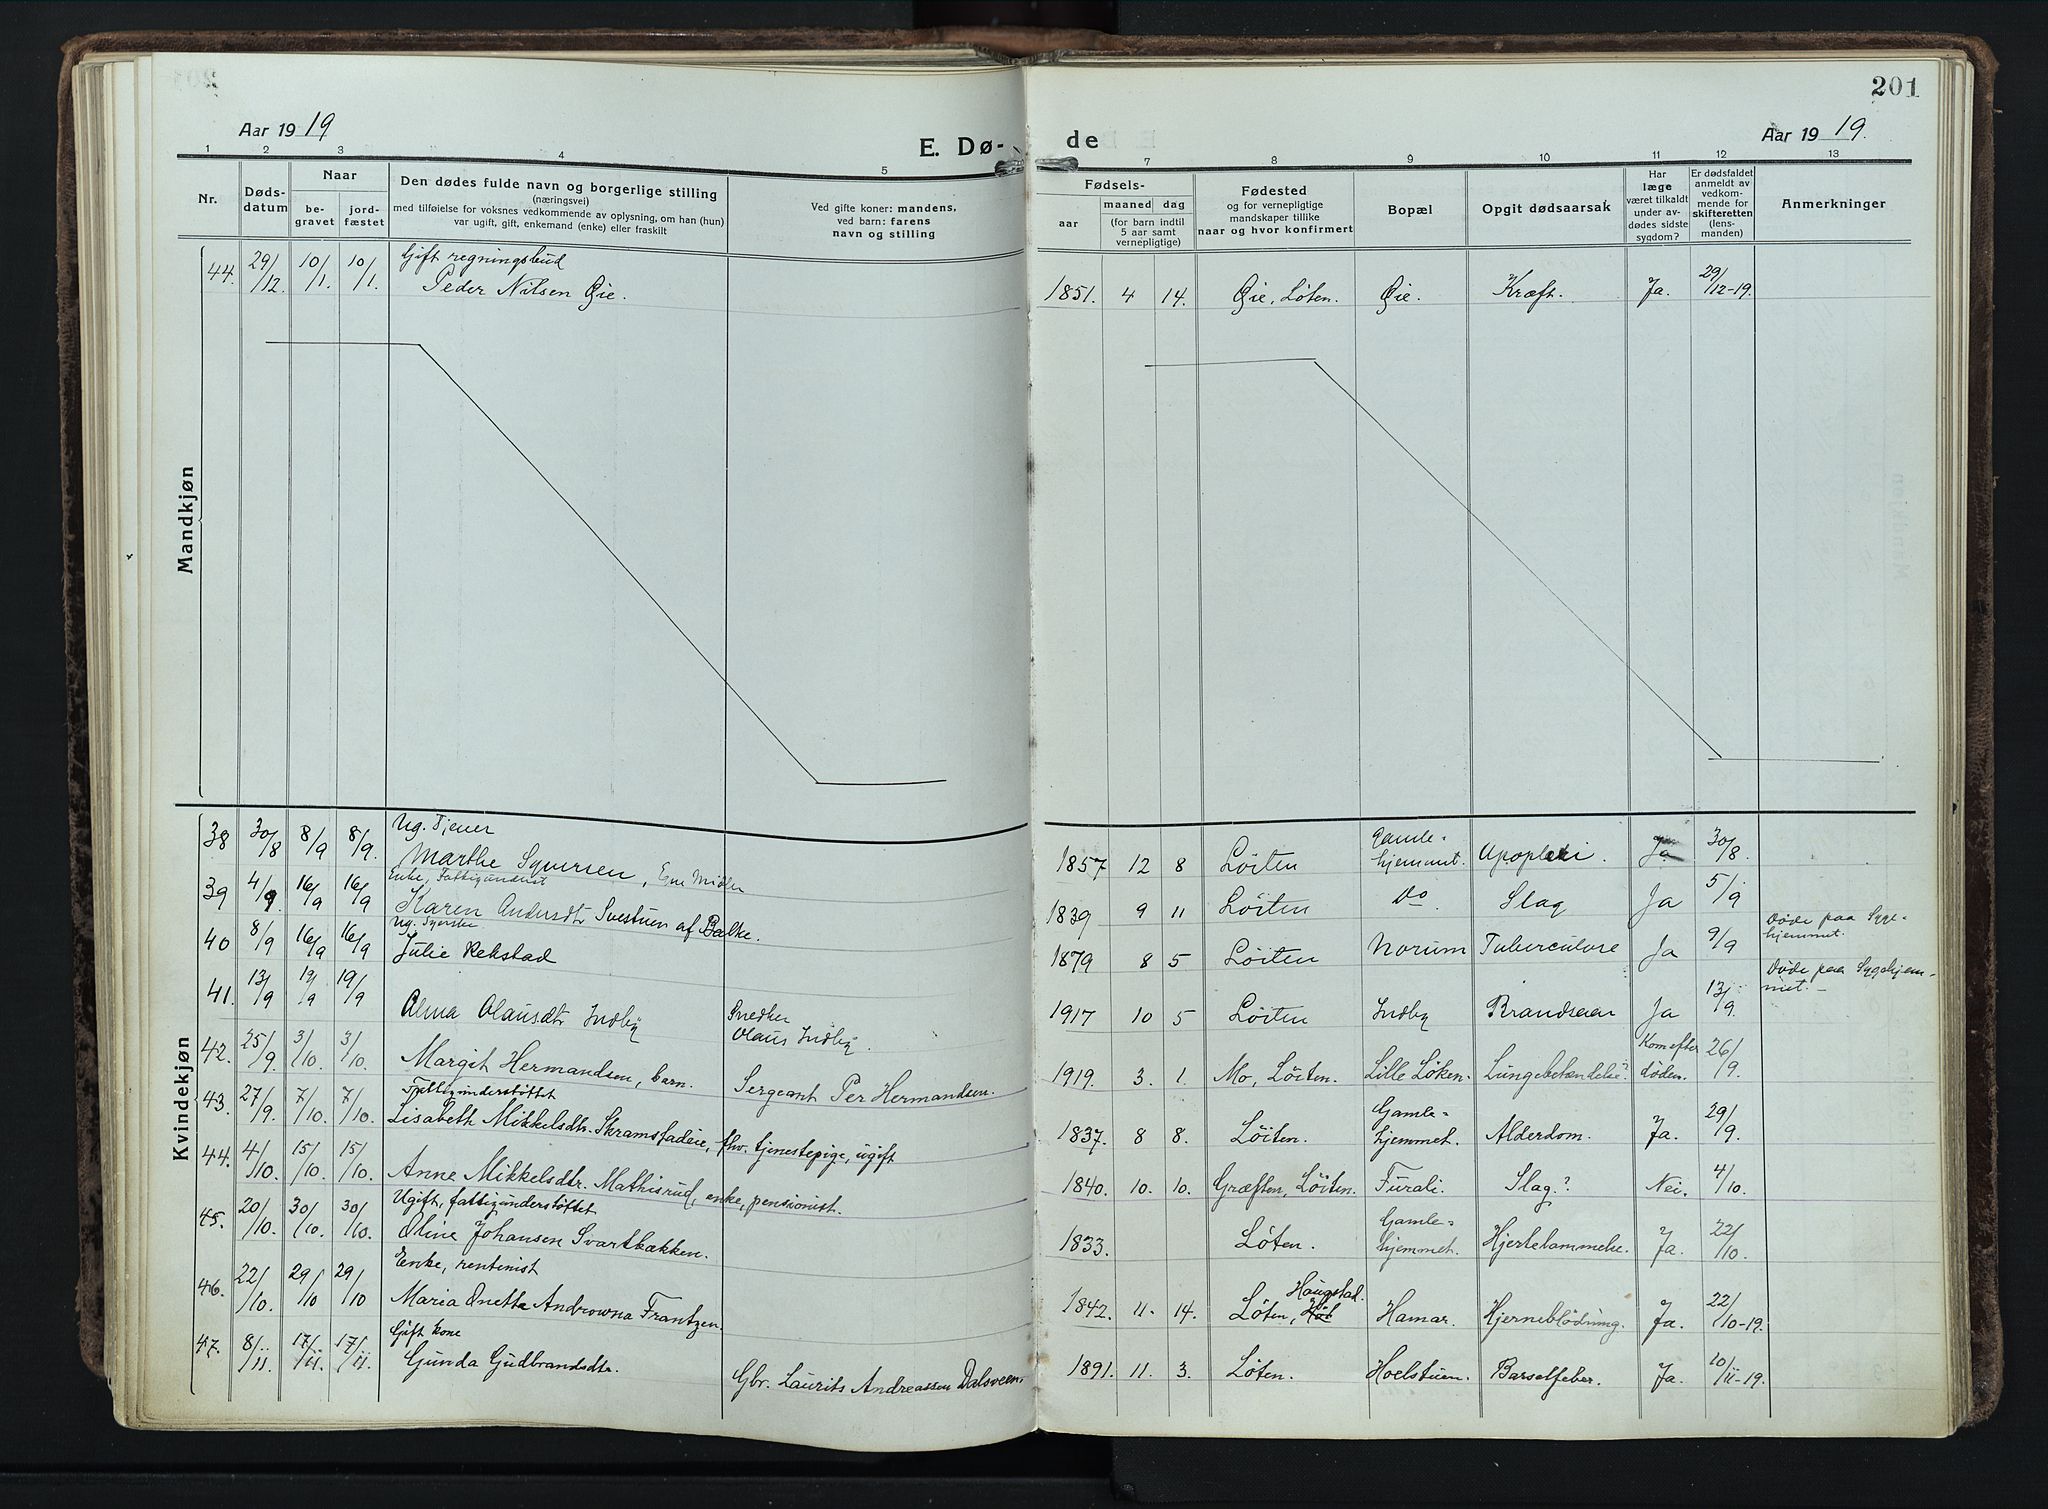 201
Aar 19 19
E. Dø-
de
Aar 19 19.
1 2 3 4 5 7 8 9 10 11 12 13
Nr.
Døds-
datum
Naar
be-
gravet
jord-
fæstet
Den dødes fulde navn og borgerlige stilling
(næringsvei)
med tilføielse for voksnes vedkommende av oplysning, om han (hun)
var ugift, gift, enkemand (enke) eller fraskilt
Ved gifte koner: mandens,
ved barn: farens
navn og stilling
Fødsels-
aar
maaned dag
(for barn indtil
5 aar samt
vernepligtige)
Fødested
og for vernepligtige
mandskaper tillike
naar og hvor konfirmert
Bopæl
Opgit dødsaarsak
Har
læge
været tilkaldt
under av-
dødes sidste
sygdom?
Er dødsfaldet
anmeldt av
vedkom-
mende for
skifteretten
(lens-
manden)
Anmerkninger
Mandkjøn
44. 29/12. 10/1. 10/1. Gift regningsbud
Peder Nilsen Øie. 1851. 4 14. Øie, Løten. Øie. Kræft. Ja. 29/12-19.
Kvindekjøn
38 30/8 8/9 8/9. Ug. Tjener
Marthe Syversen, Ene 1857 12 8 Løiten Gamle-
hjemmet. Apoplexi. Ja 30/8.
39 4/9. 16/9 16/9 Enke, Fattigunderst
Karen Andersdtr Svestuen af Balke. 1839 9 11 Løiten Do Slag Ja 5/9
40 8/9 16/9 16/9 Ug.
Julie Rekstad 1879 8 5 Løiten Norum Tuberculose Ja 9/9 Døde paa Syge-
hjemmet.
41. 13/9 19/9 19/9 Alma Olausdtr Indby Snedker
Olaus Indby. 1917 10 5 Løiten Indby Brandsaar Ja 13/9. Døde paa Sygehjem-
met.
42. 25/9. 3/10. 3/10. Margit Hermandsen, barn. Sergeant Per Hermandsen. 1919. 3. 1. Mo, Løiten. Lille Løken. Lungebetændelse? Kom efter
døden. 26/9.
43. 27/9. 7/10. 7/10. Fattigunderstøttet
Lisabeth Mikkelsdtr. Skramsfadeie, fhv. tjenestepige, ugift 1837. 8 8. Løiten. Gamle-
hjemmet. Alderdom. Ja. 29/9.
44. 4/10. 15/10. 15/10. Anne Mikkelsdtr. Mathisrud, enke, pensionist. 1840. 10. 10. Græften, Løiten. Furali. Slag? Nei. 4/10.
45. 20/10. 30/10. 30/10. Ugift, fattigunderstøttet
Oline Johansen Svartbækken. 1833. Løten. Gamle-
hjemmet. Hjertelammelse. Ja. 22/10.
46. 22/10. 29/10 29/10 Enke, rentenist
Maria Onetta Androwna Frantzen. 1842. 11. 14. Haugstad.
Løten, Hamar. Hjerneblødning. Ja. 22/10-19.
47. 8/11. 17/11. 17/11. Gift kone
Gunda Gudbrandsdtr. Gbr. Laurits Andreassen Dalsveen. 1891. 11. 3. Løten. Hoelstuen. Barselfeber. Ja. 10/11-19.